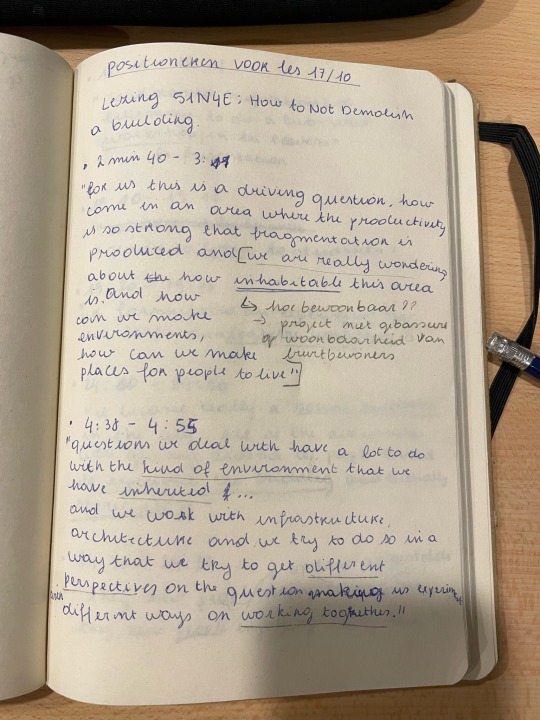 positioneren voor les 17/10
Lezing 51N4E: How to Not Demolish
a building.
• 2 min 40 - 3:
"for us this is a driving question, how
come in an area where the productivity
is so strong that fragmentation is
produced and [we are really wondering
about the how inhabitable this area
is. And how
can we make
environments,
how can we make
places for people to live"]
↳ hoe bewoonbaar??
→ project met
op woonbaarheid van
buurtbewoners
• 4:38 - 4:55
"questions we deal with have a lot to do
with the kind of environment that we
have inherited &...
and we work with infrastructure,
architecture and we try to do so in a
way that we try to get different
perspectives on the question making us
different ways on working together."